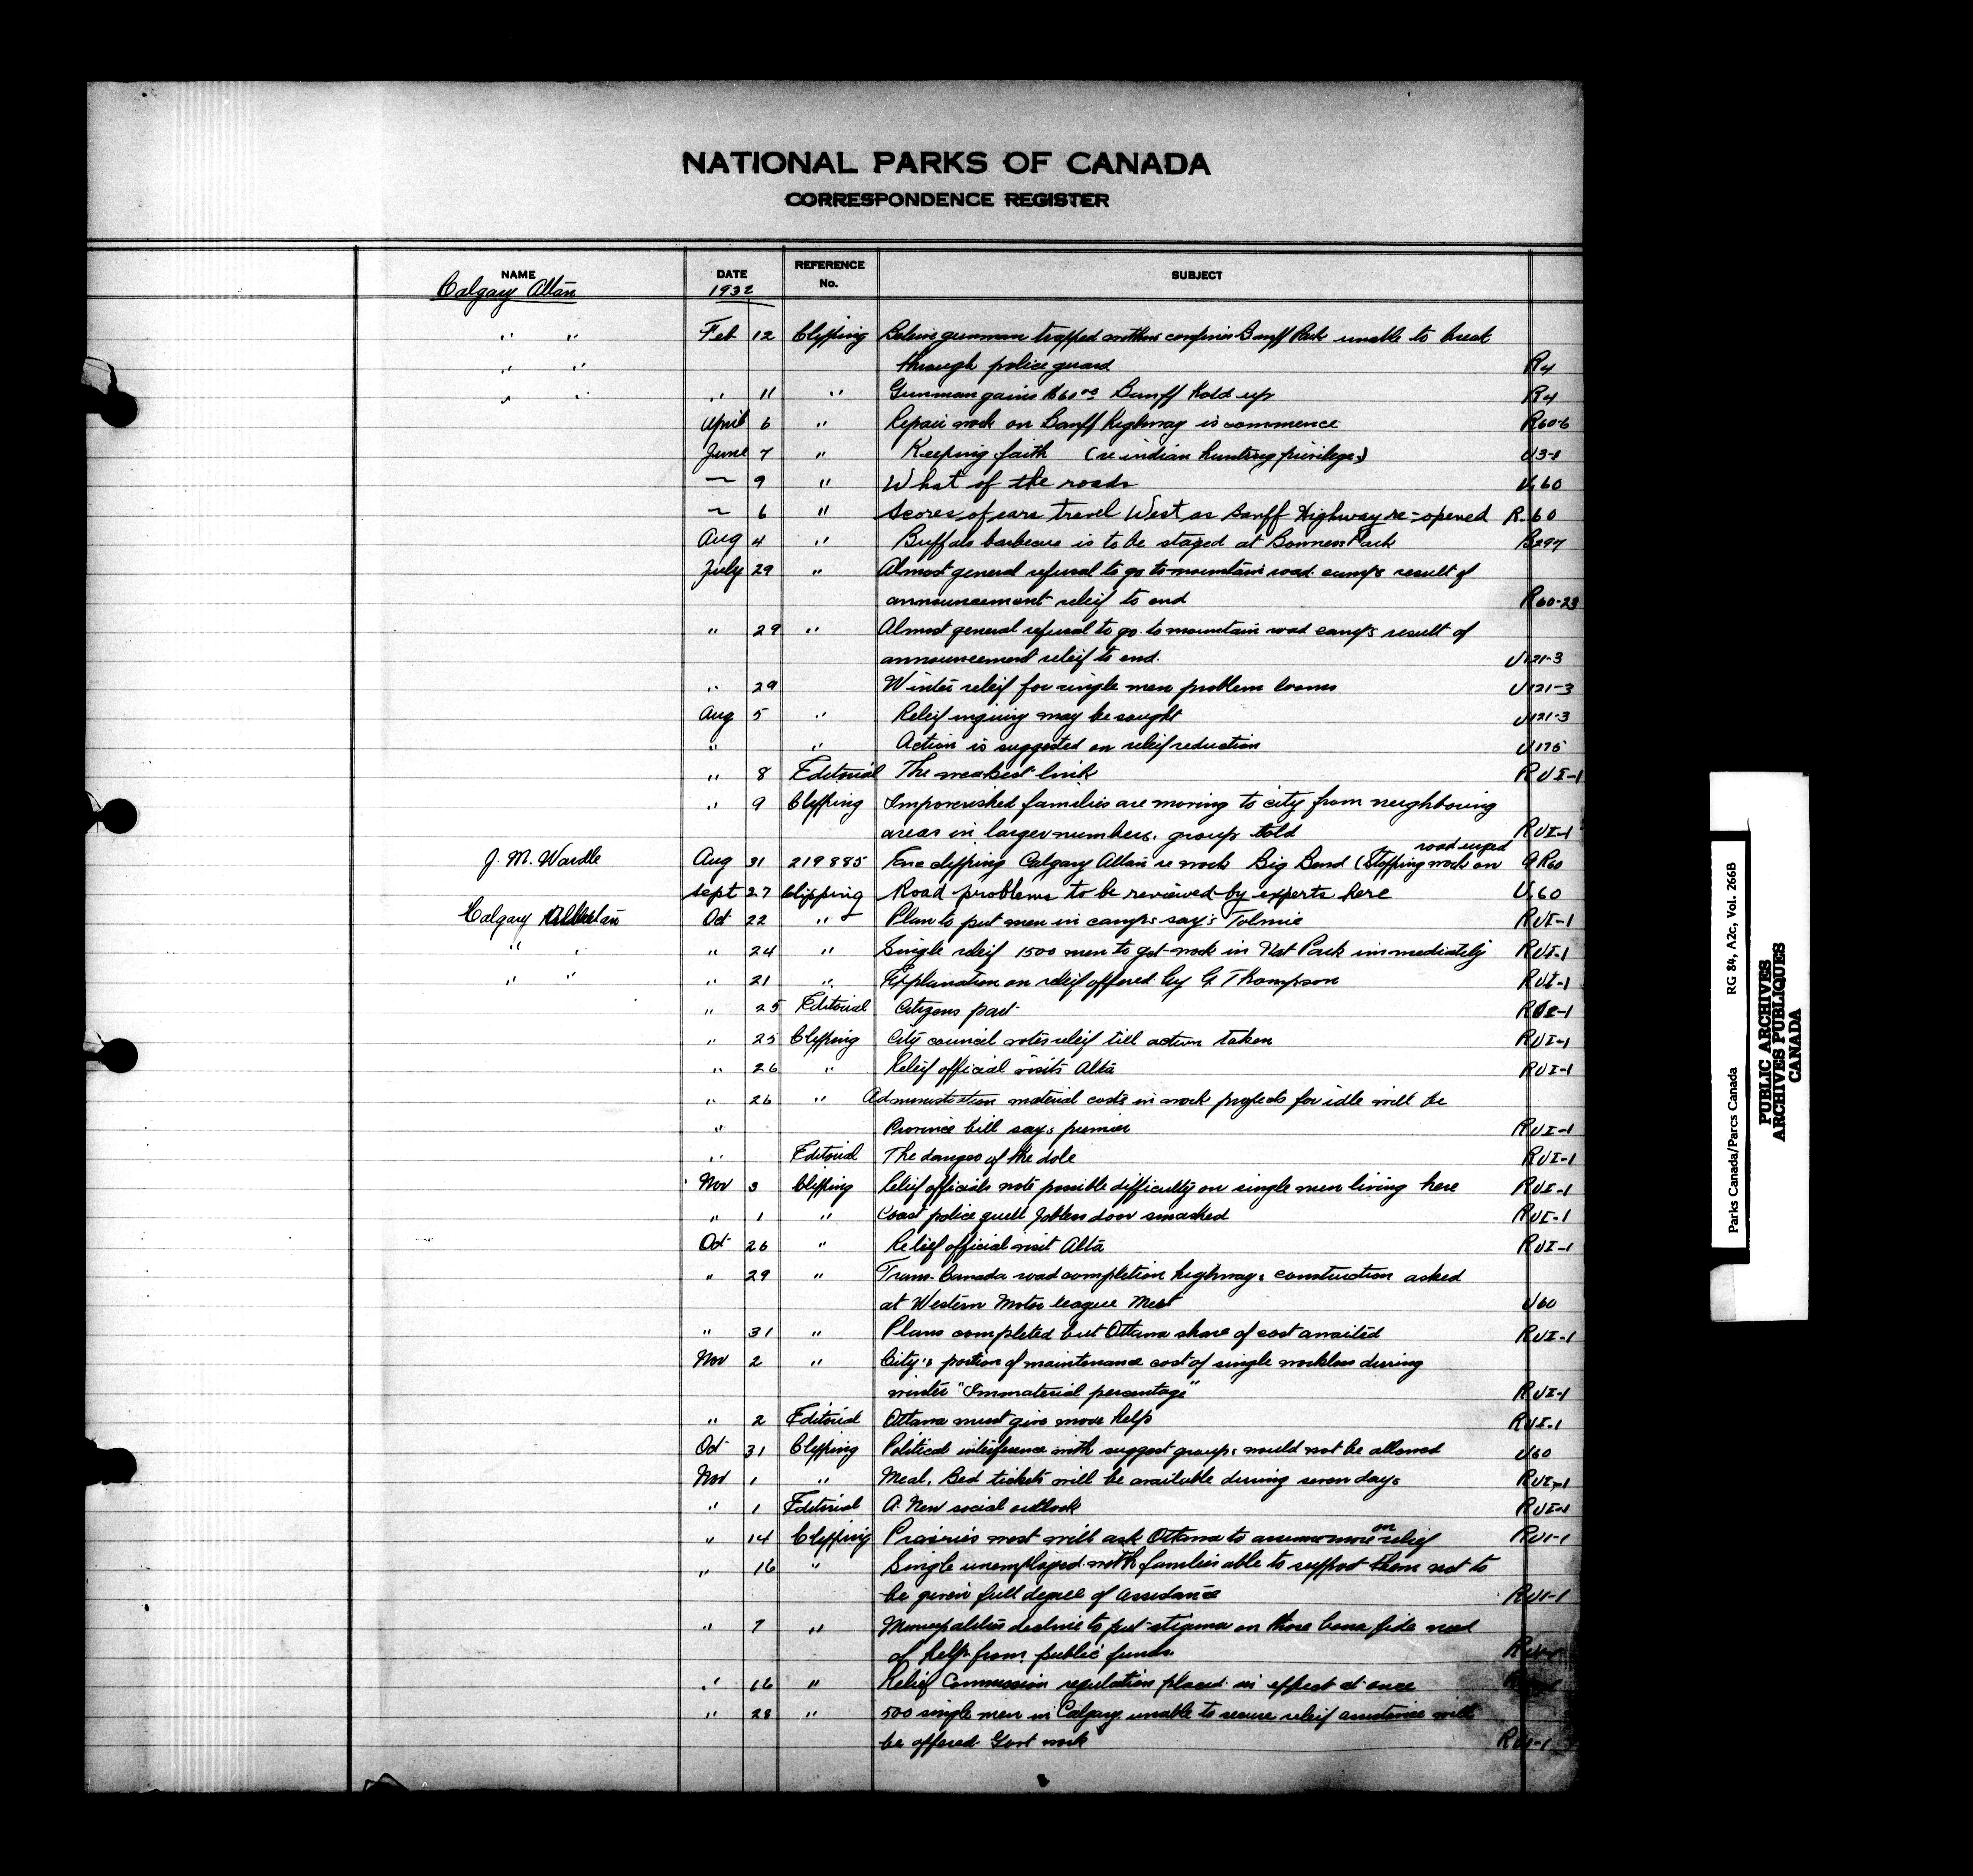 NATIONAL PARKS OF CANADA
CORRESPONDENCE REGISTER
NAME DATE REFERENCE No. SUBJECT
Calgary Altan 1932
" " Feb 12 Clipping Beleive gunman trapped within confines Banff Park unable to break
" " through police guard R4
" " " 11 " Gunman gains $60 00 Banff Hold up R4
April 6 " Repair work on Banff Highway is commence R60-6
June 7 " Keeping faith (re indian hunting privileges) U3-1
— 9 " What of the roads U.60
— 6 " Scores of cars travel West as Banff Highway re-opened R.60
Aug 4 " Buffalo barbecue is to be staged at Bowness Park B297
July 29 " Almost general refusal to go to mountain road camps result of
announcement releif to end R60-23
" 29 " Almost general refusal to go to mountain road camps result of
announcement releif to end. U121-3
" 29 Winter releif for single men problem looms U121-3
Aug 5 " Releif inquiry may be sought U121-3
" " Action is suggested on releif reduction U175
" 8 Editorial The weakest link RUI-1
" 9 Clipping Impoverished families are moving to city from neighbouring
areas in larger numbers, group told RUI-1
road urged
J. M. Wardle Aug 31 219885 Enc clipping Calgary Altan re work Big Bend (Stopping work on GR60
Sept 27 Clipping Road problems to be reviewed by experts here U.60
Calgary Albertan Oct 22 " Plan to put men in camps says Tolmie RUI-1
" " " 24 " Single releif 1500 men to get work in Nat Park immediately RUI-1
" " " 21 " Explanation on releif offered by G Thompson RUI-1
" 25 Editorial Citizens part RUI-1
" 25 Clipping City council votes releif till action taken RUI-1
" 26 " Releif official visits Alta RUI-1
" 26 " Administration material costs in work projects for idle will be
" Province bill says premier RUI-1
" Editorial The danger of the dole RUI-1
Nov 3 Clipping Releif officials note possible difficulty on single men living here RUI-1
" 1 " Coast police quell Jobless door smashed RUI-1
Oct 26 " Relief official visit Alta RUI-1
" 29 " Trans-Canada road completion highways construction asked
at Western Motor league Meet U60
" 31 " Plans completed but Ottawa share of cost awaited RUI-1
Nov 2 " City's portion of maintenance cost of single workless during
winter "Immaterial percentage" RUI-1
" 2 Editorial Ottawa must give more help RUI-1
Oct 31 Clipping Political interference with suggest groups would not be allowed U60
Nov 1 " Meal, Bed tickets will be available during seven days RUI-1
" 1 Editorial A New social outlook RUI-1
on
" 14 Clipping Prairies west will ask Ottawa to assume more relief RUI-1
" 16 " Single unemployed with families able to support them not to
be given full degree of assistance RUI-1
" 7 " Municipalities decline to put stigma on those bona fide need
of help from public funds.
" 16 " Relief Commission regulation placed in effect at once
" 28 " 500 single men in Calgary unable to secure releif assistance will
be offered Govt work RUI-1
Parks Canada/Parcs Canada RG 84, A2c, Vol. 266B
PUBLIC ARCHIVES
ARCHIVES PUBLIQUES
CANADA